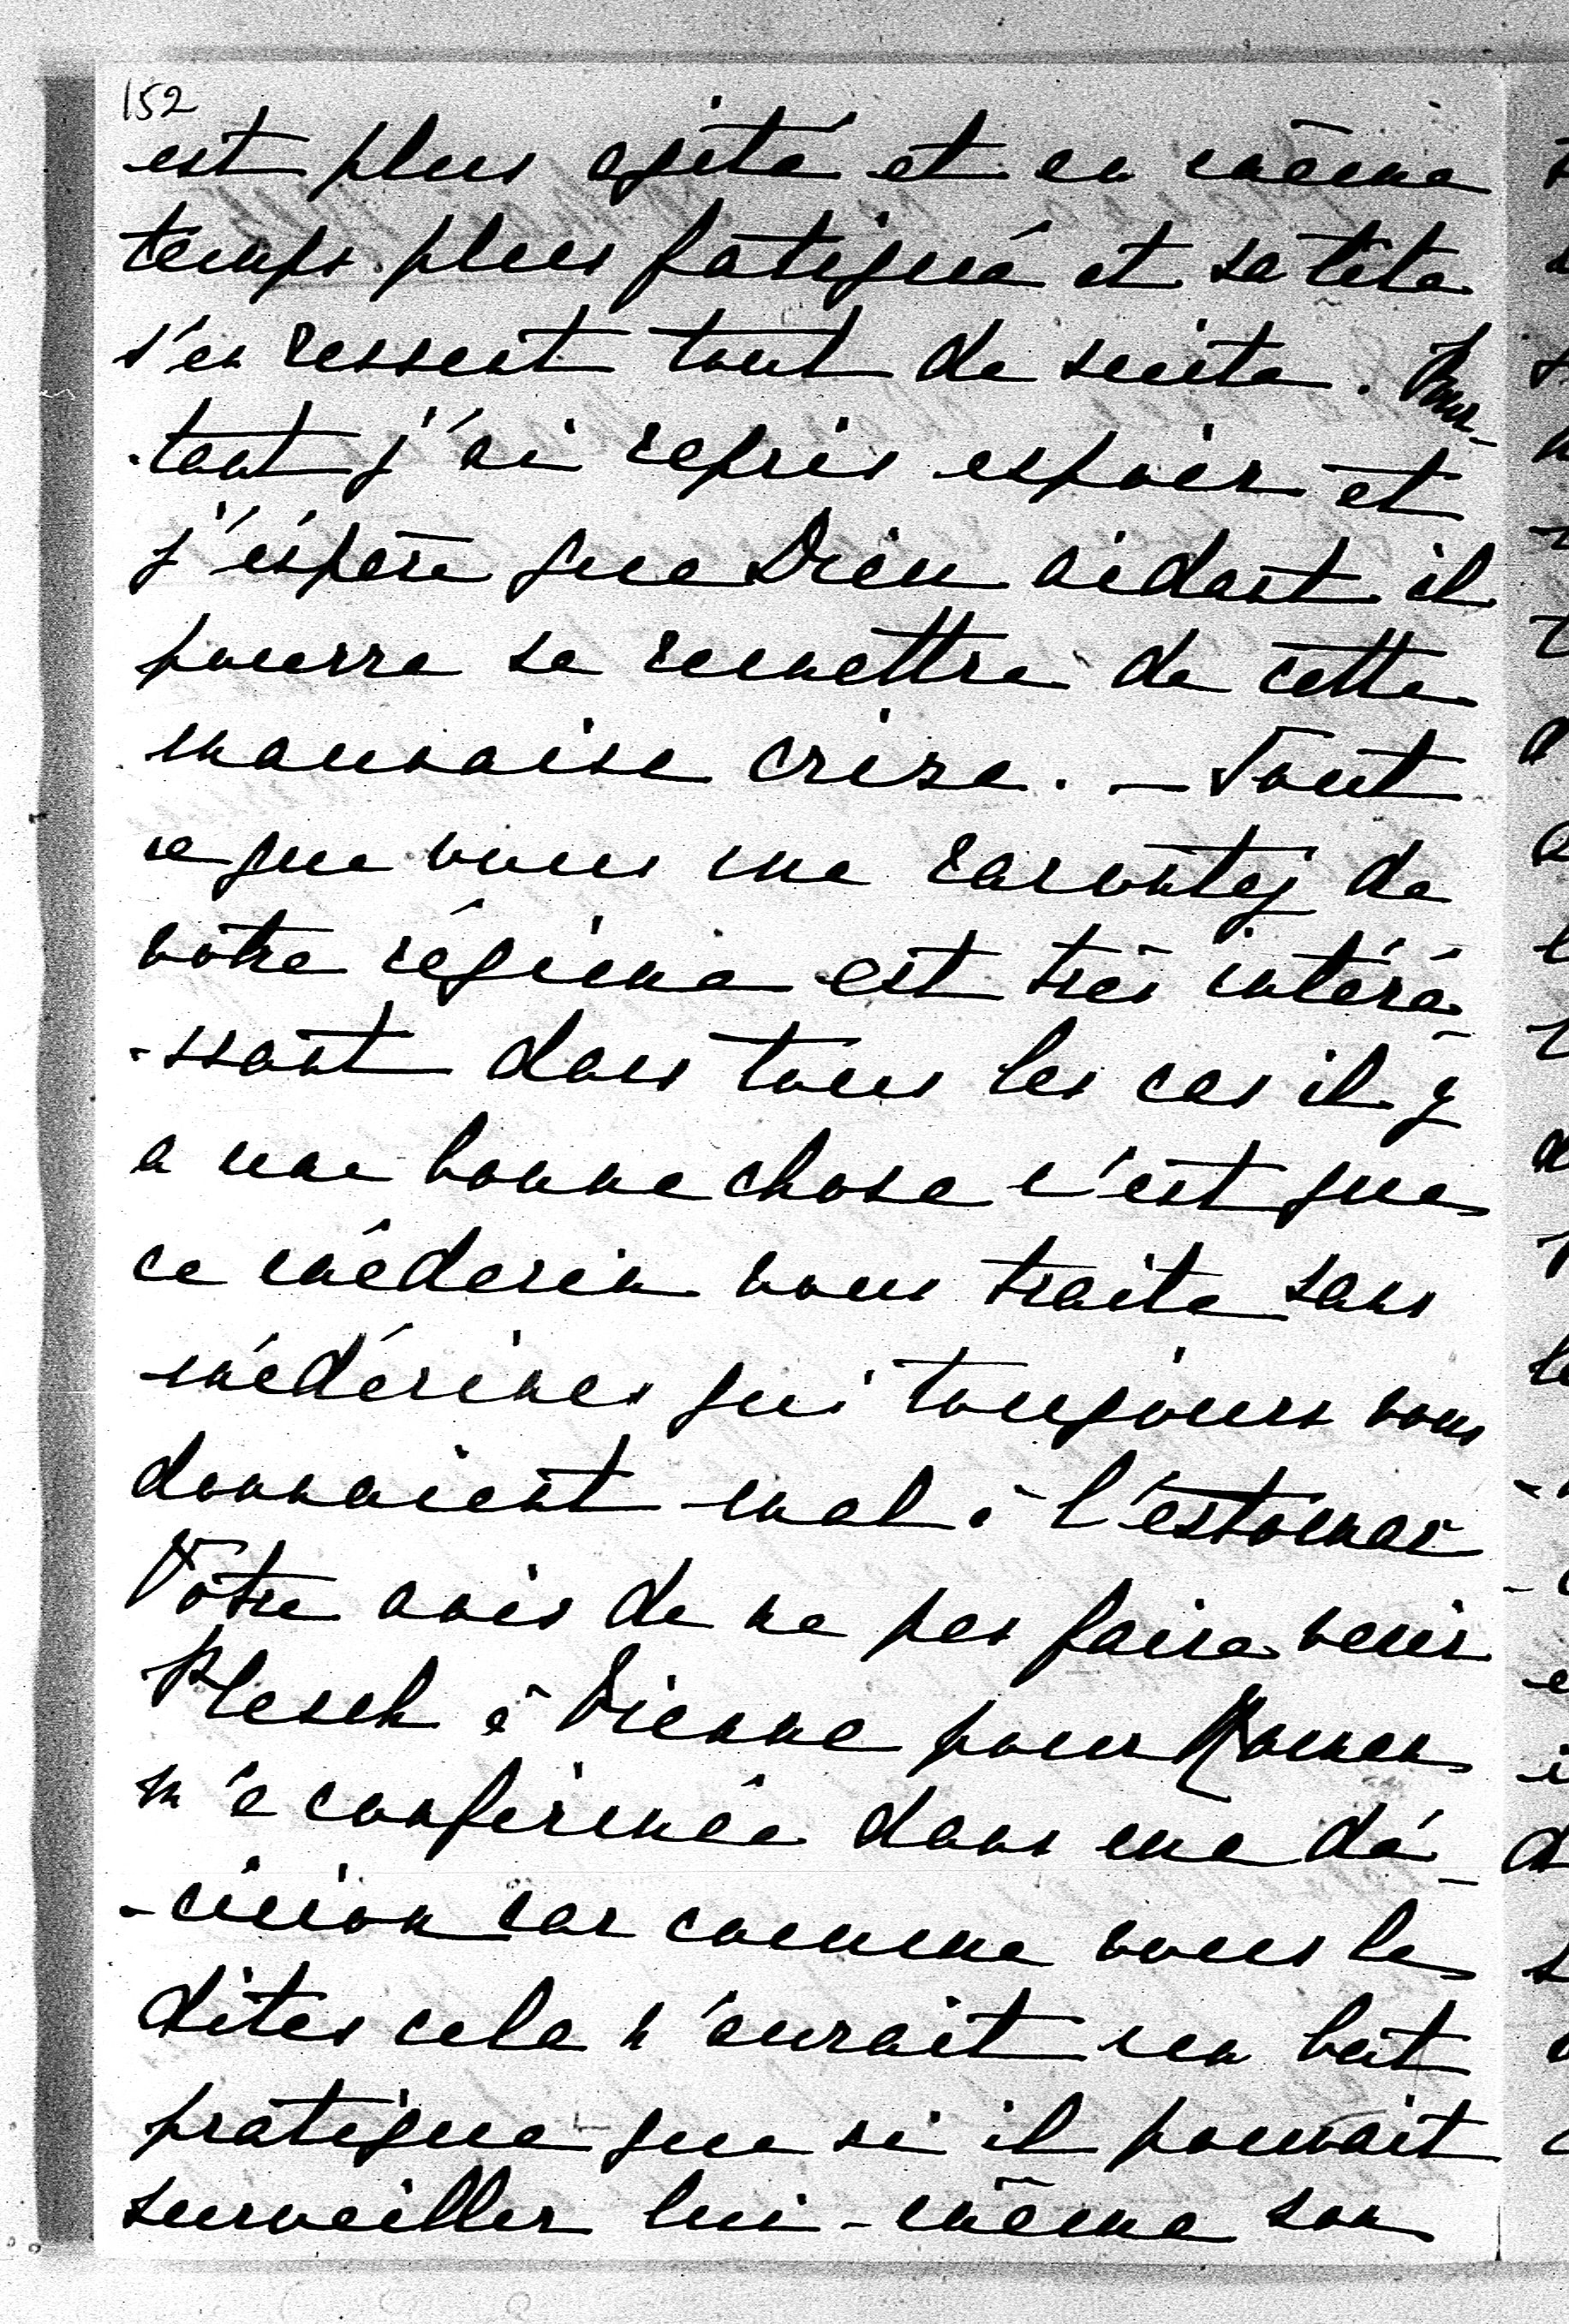 152
est plus agité et en même
temps plus fatigué et sa tête
s'en ressent tout de suite. Pour-
-tant j'ai repris espoir et
j'éspère que Dieu aidant il
pourra se remettre de cette
mauvaise crise. — Tout
ce que vous me racontez de
vôtre régime est très intéré-
-ssant dans tous les cas il y
a une bonne chose c'est que
ce médecin vous traite sans
médécines qui toujours vous
donnaient mal à l'estomac
Vôtre avis de ne pas faire venir
Plesch à Vienne pour Roman
m'a confirmée dans ma dé-
-cision car comme vous le
dites cela n'aurait un but
pratique que si il pouvait
surveiller lui-même son